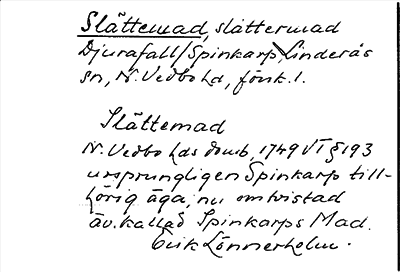 Slättemad, slåttermad
Djurafall/Spinkarp Linderås
sn, N. Vedbo hd, fönk. 1.
Slättemad
N. Vedbo hds domb. 1749 VI § 193
ursprungligen Spinkarp till-
hörig äga, nu omtvistad
äv. kallad Spinkarps Mad.
Erik Lönnerholm.